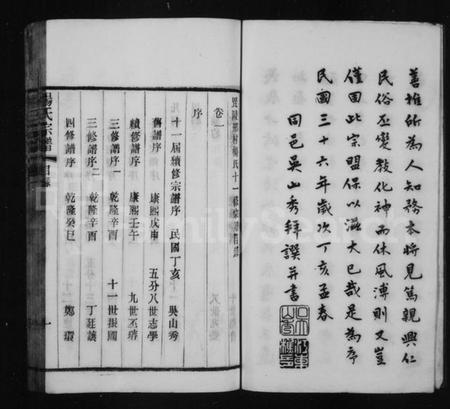 善推衍為人知務本將見篤親興仁
民俗丕變教化神而休風溥則又豈
僅固此宗盟保以滋大已哉是為序
民國三十六年歲次丁亥孟春
同邑吳山秀拜譔并書
卷一
序
十一屆續修宗譜序 民國丁亥 吳山秀
舊譜序 康熙戊申 五分八世志學
續修譜序 康熙壬午 九世丕
三修譜序一 乾隆辛酉 十一世振國
三修譜序二 乾隆辛酉 十三丁廷讓
四修譜序 乾隆癸巳 鄭環
楊氏宗譜 目錄
FamilySearch